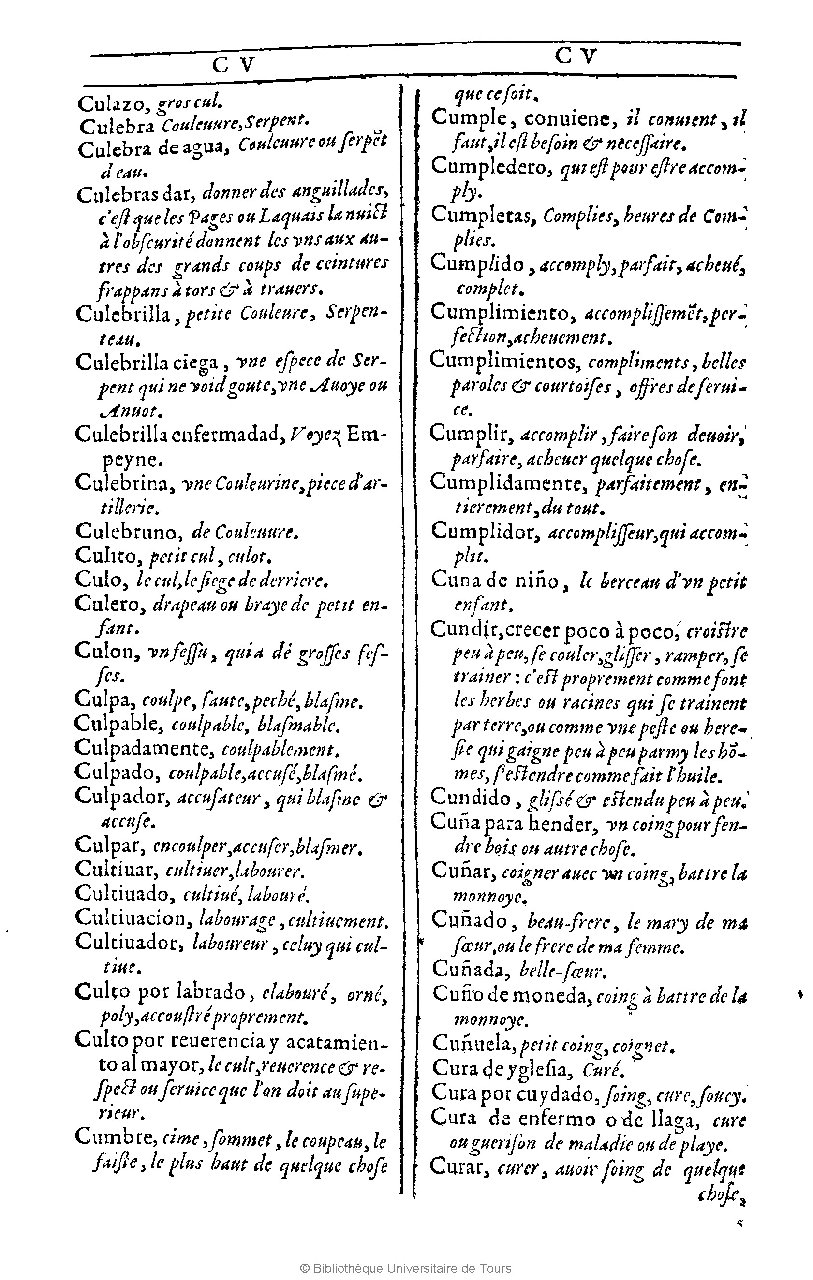 C V
Culazo, gros cul.
Culebra Couleuure, Serpent.
Culebra de agua, Couleuure ou serpẽt
d'eau.
Culebras dar, donner des anguillades,
c'est que les Pages ou Laquais la nuict
à l'obscurité donnent les vns aux au-
tres des grands coups de ceintures
frappans à tors & à trauers.
Culebrilla, petite Couleure, Serpen-
teau.
Culebrilla ciega, vne espece de Ser-
pent qui ne void goute, vne Auoye ou
Anuot.
Culebrilla enfermadad, Voyez Em-
peyne.
Culebrina, vne Couleurine, piece d'ar-
tillerie.
Culebruno, de Couleuure.
Culito, petit cul, culot.
Culo, le cul, le siege de derriere.
Culero, drapeau ou braye de petit en-
fant.
Culon, vn fessu, qui a dé grosses fes-
ses.
Culpa, coulpe, faute, peché, blasme.
Culpable, coulpable, blasmable.
Culpadamente, coulpablement.
Culpado, coulpable, accusé, blasmé.
Culpador, accusateur, qui blasme &
accuse.
Culpar, encoulper, accuser, blasmer.
Cultiuar, cultiuer, labourer.
Cultiuado, cultiué, labouré.
Cultiuacion, labourage, cultiuement.
Cultiuador, laboureur, celuy qui cul-
tiue.
Culto por labrado, elabouré, orné,
poly, accoustré proprement.
Culto por reuerencia y acatamien-
to al mayor, le cult, reuerence & re-
spect ou seruice que l'on doit au supe-
rieur.
Cumbre, cime, sommet, le coupeau, le
faiste, le plus haut de quelque chose
C V
que ce soit.
Cumple, conuiene, il conuient, il
faut, il est besoin & necessaire.
Cumpledero, qui est pour estre accom-
ply.
Cumpletas, Complies, heures de Com-
plies.
Cumplido, accomply, parfait, acheué,
complet.
Cumplimiento, accomplissemẽt, per-
fection, acheuement.
Cumplimientos, compliments, belles
paroles & courtoises, offres de serui-
ce.
Cumplir, accomplir, faire son deuoir,
parfaire, acheuer quelque chose.
Cumplidamente, parfaitement, en-
tierement, du tout.
Cumplidor, accomplisseur, qui accom-
plit.
Cuna de niño, le berceau d'vn petit
enfant.
Cundir, crecer poco à poco, croistre
peu à peu, se couler, glisser, ramper, se
trainer : c'est proprement comme font
les herbes ou racines qui se trainent
par terre, ou comme vne peste ou here-
sie qui gaigne peu à peu parmy les hõ-
mes, s'estendre comme fait l'huile.
Cundido, glissé & estendu peu à peu.
Cuña para hender, vn coing pour fen-
dre bois ou autre chose.
Cuñar, coigner auec vn coing, battre la
monnoye.
Cuñado, beau-frere, le mary de ma
sœur, ou le frere de ma femme.
Cuñada, belle-sœur.
Cuño de moneda, coing à battre de la
monnoye.
Cuñuela, petit coing, coignet.
Cura de yglesia, Curé.
Cura por cuydado, soing, cure, soucy.
Cura de enfermo o de llaga, cure
ou guerison de maladie ou de playe.
Curar, curer, auoir soing de quelque
chose,
© Bibliothèque Universitaire de Tours